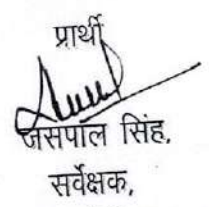 प्रार्थी
जसपाल सिंह,
सर्वेक्षक,